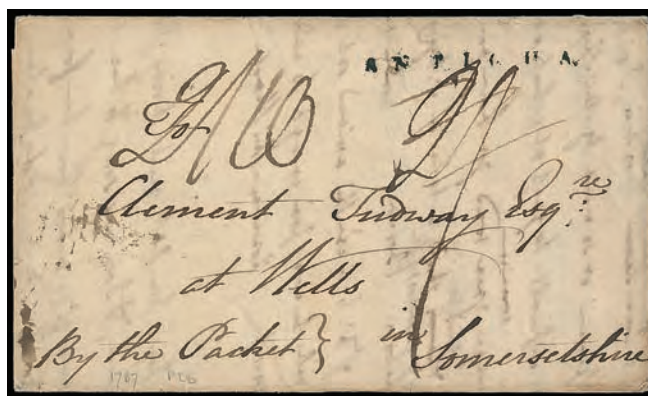 ANTIGUA
To
Clement Tudway Esq.re
at Wells
By the Packet } in Somersetshire
1787